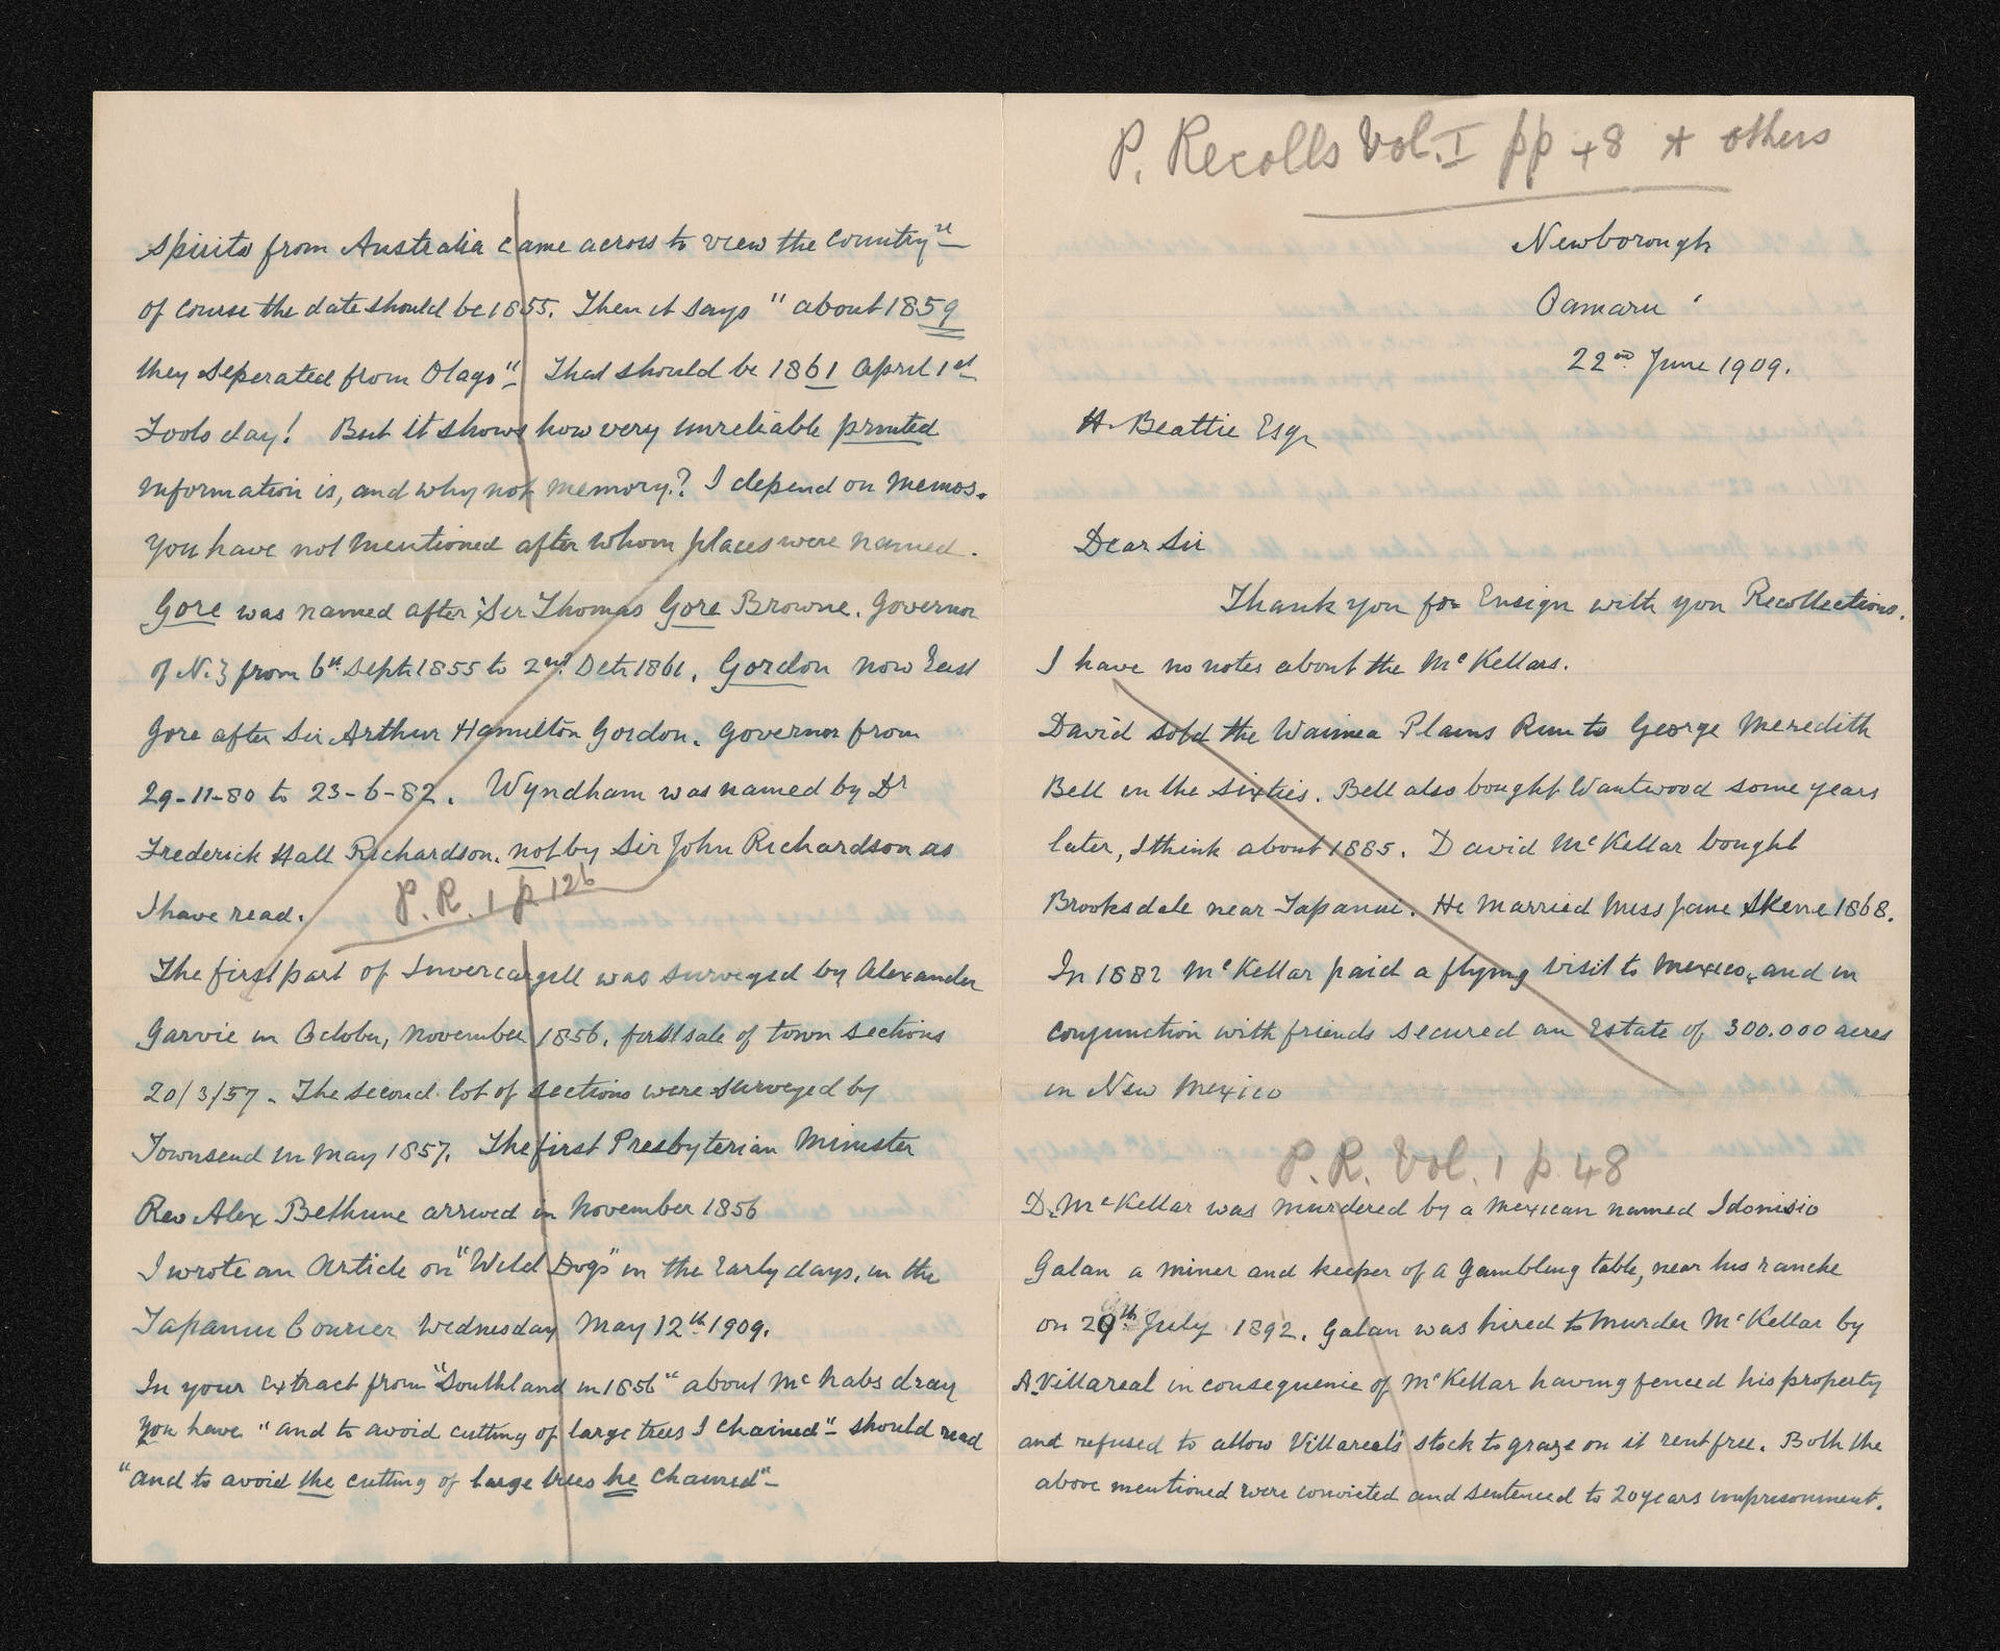 P. Recolls Vol. I pp 48 & others
Newborough
Oamaru
22nd June 1909.
H. Beattie Esqr
Dear Sir
Thank you for Ensign with you Recollections.
I have no notes about the McKellars.
David sold the Waimea Plains Run to George Meredith
Bell in the sixties. Bell also bought Wantwood some years
later, I think about 1885. David McKellar bought
Brooksdale near Tapanui. He married Miss Jane Skene 1868.
In 1882 McKellar paid a flying visit to Mexico, and in
conjunction with friends secured an Estate of 300.000 acres
in New Mexico
P.R. Vol. 1 p. 48
D. McKellar was murdered by a Mexican named Idonisio
Galan a miner and keeper of a gambling table, near his ranche
on 29th July 1892. Galan was hired to murder McKellar by
A. Villareal in consequence of McKellar having fenced his property
and refused to allow Villareal's stock to graze on it rent free. Both the
above mentioned were convicted and sentenced to 20 years imprisonment.
spirits from Australia came across to view the country"
of course the date should be 1855. Then it says "about 1859
they seperated from Otago" That should be 1861 April 1st
Fools day! But it shows how very unreliable printed
information is, and why not memory.? I depend on memos.
You have not mentioned after whom places were named.
Gore was named after Sir Thomas Gore Browne. Governor
of N.Z from 6th Sept 1855 to 2nd Octr 1861. Gordon now East
Gore after Sir Arthur Hamilton Gordon. Governor from
29-11-80 to 23-6-82. Wyndham was named by Dr
Frederick Hall Richardson. not by Sir John Richardson as
I have read.
P.R. 1 p 126
The first part of Invercargill was surveyed by Alexander
Garvie in October, November 1856. first sale of town sections
20/3/57. The second lot of sections were surveyed by
Townsend in May 1857. The first Presbyterian Minister
Rev Alex Bethune arrived in November 1856
I wrote an Article on "Wild Dogs" in the Early days, in the
Tapanui Courier Wednesday May 12th 1909.
In your extract from "Southland in 1856" about McNabs dray
you have "and to avoid cutting of large trees I chained" – should read
"and to avoid the cutting of large trees he chained" –